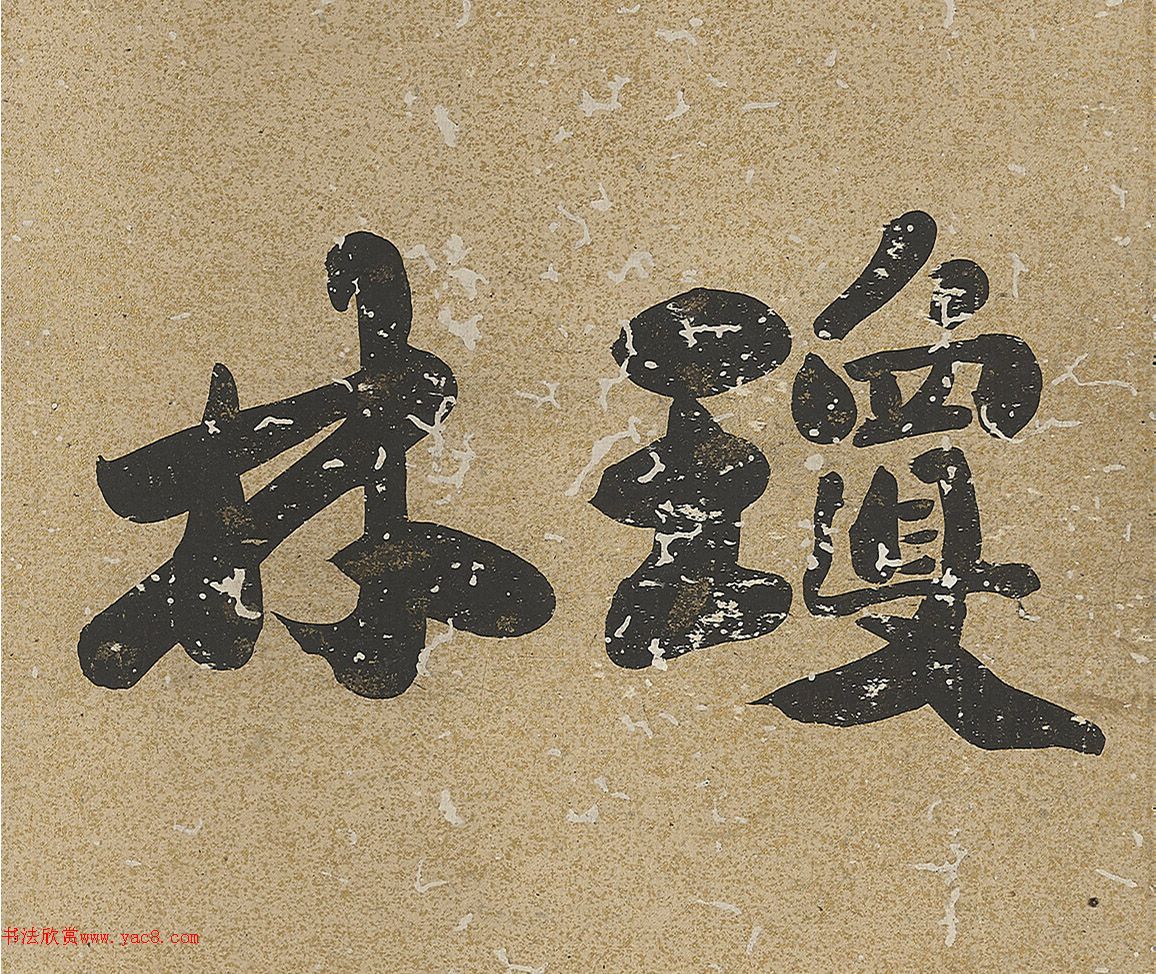 瓊林
书法欣赏www.yac8.com